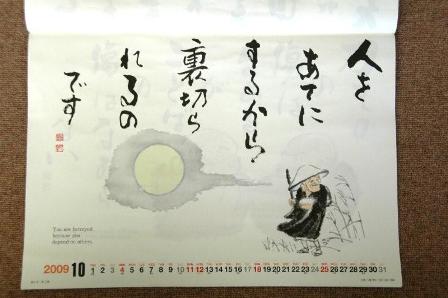 人を
あてに
するから
裏切ら
れるの
です
You are betrayed
because you
depend on others.
2009 10 1 2 3 4 5 6 7 8 9 10 11 12 13 14 15 16 17 18 19 20 21 22 23 24 25 26 27 28 29 30 31